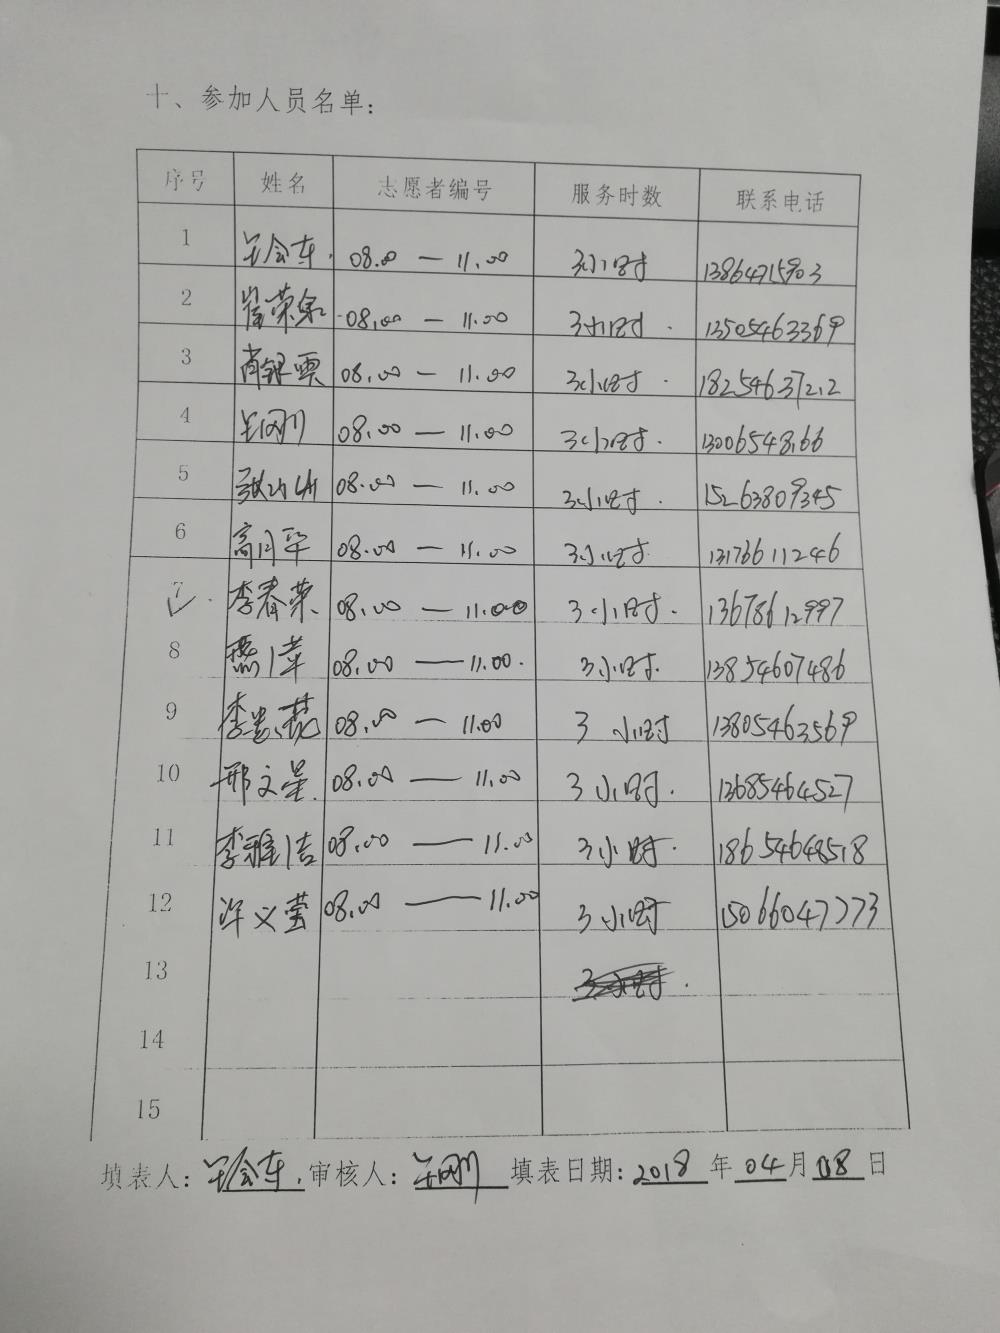 十、参加人员名单：
序号 姓名 志愿者编号 服务时数 联系电话
1 08.00 — 11.00 3小时 13864715903
2 崔荣泉 08.00 — 11.00 3小时 13505463369
3 肖银霞 08.00 — 11.00 3小时 18254637212
4 王刚 08.00 — 11.00 3小时 13006548166
5 08.00 — 11.00 3小时 15263809345
6 高月华 08.00 — 11.00 3小时 13176611246
7 李春荣 08.00 — 11.00 3小时 13678612997
8 08.00 — 11.00 3小时 13854607486
9 08.00 — 11.00 3 小时 13805463569
10 邢文星 08.00 — 11.00 3小时 13685464527
11 李雅洁 08.00 — 11.00 3小时 18654648518
12 许义莹 08.00 — 11.00 3小时 15066047773
13
14
15
填表人： 审核人：王刚 填表日期：2018 年 04 月 08 日